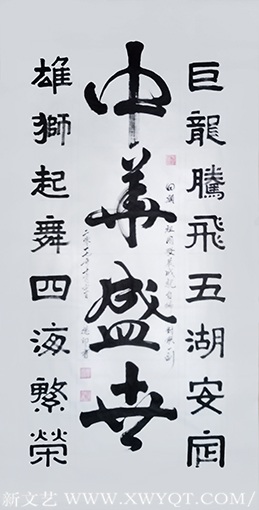 巨龍騰飛五湖安定
中华盛世
雄獅起舞四海繁榮
新文艺 WWW.XWYQT.COM